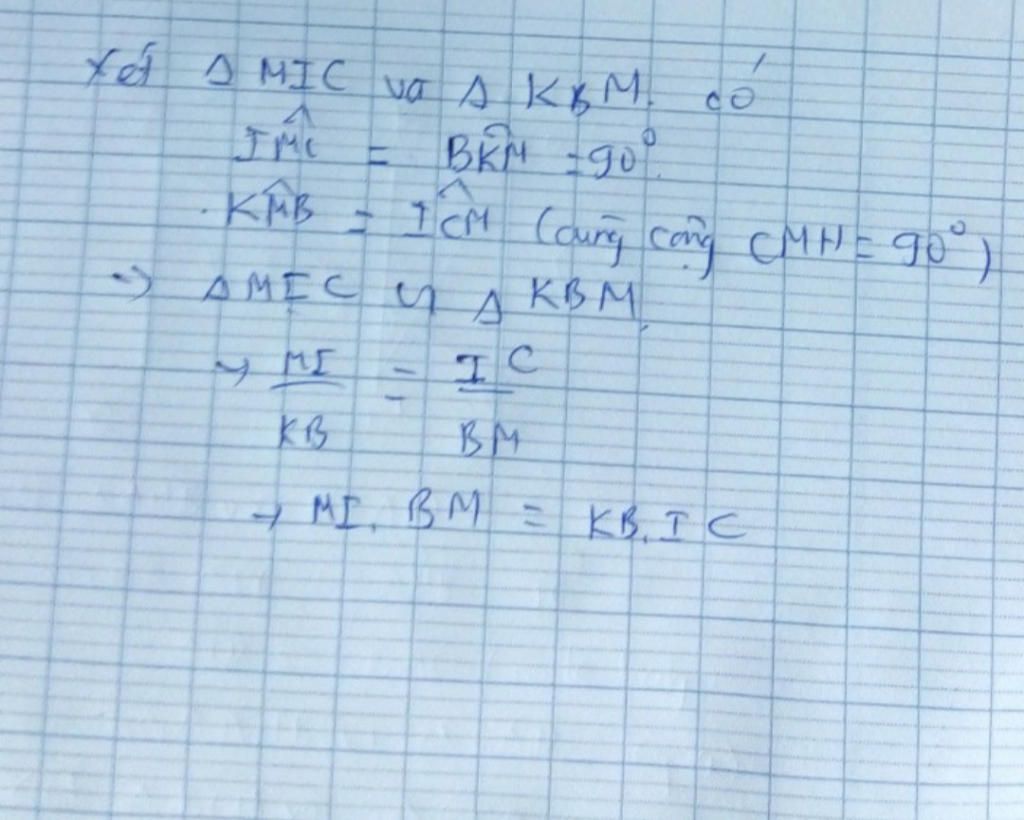 Xét Δ MIC và Δ KBM có
IM̂C = BK̂M = 90°.
KM̂B = IĈM (cùng cộng CMH = 90°)
→ ΔMIC ∽ Δ KBM.
→ MI/KB = IC/BM
→ MI. BM = KB. IC